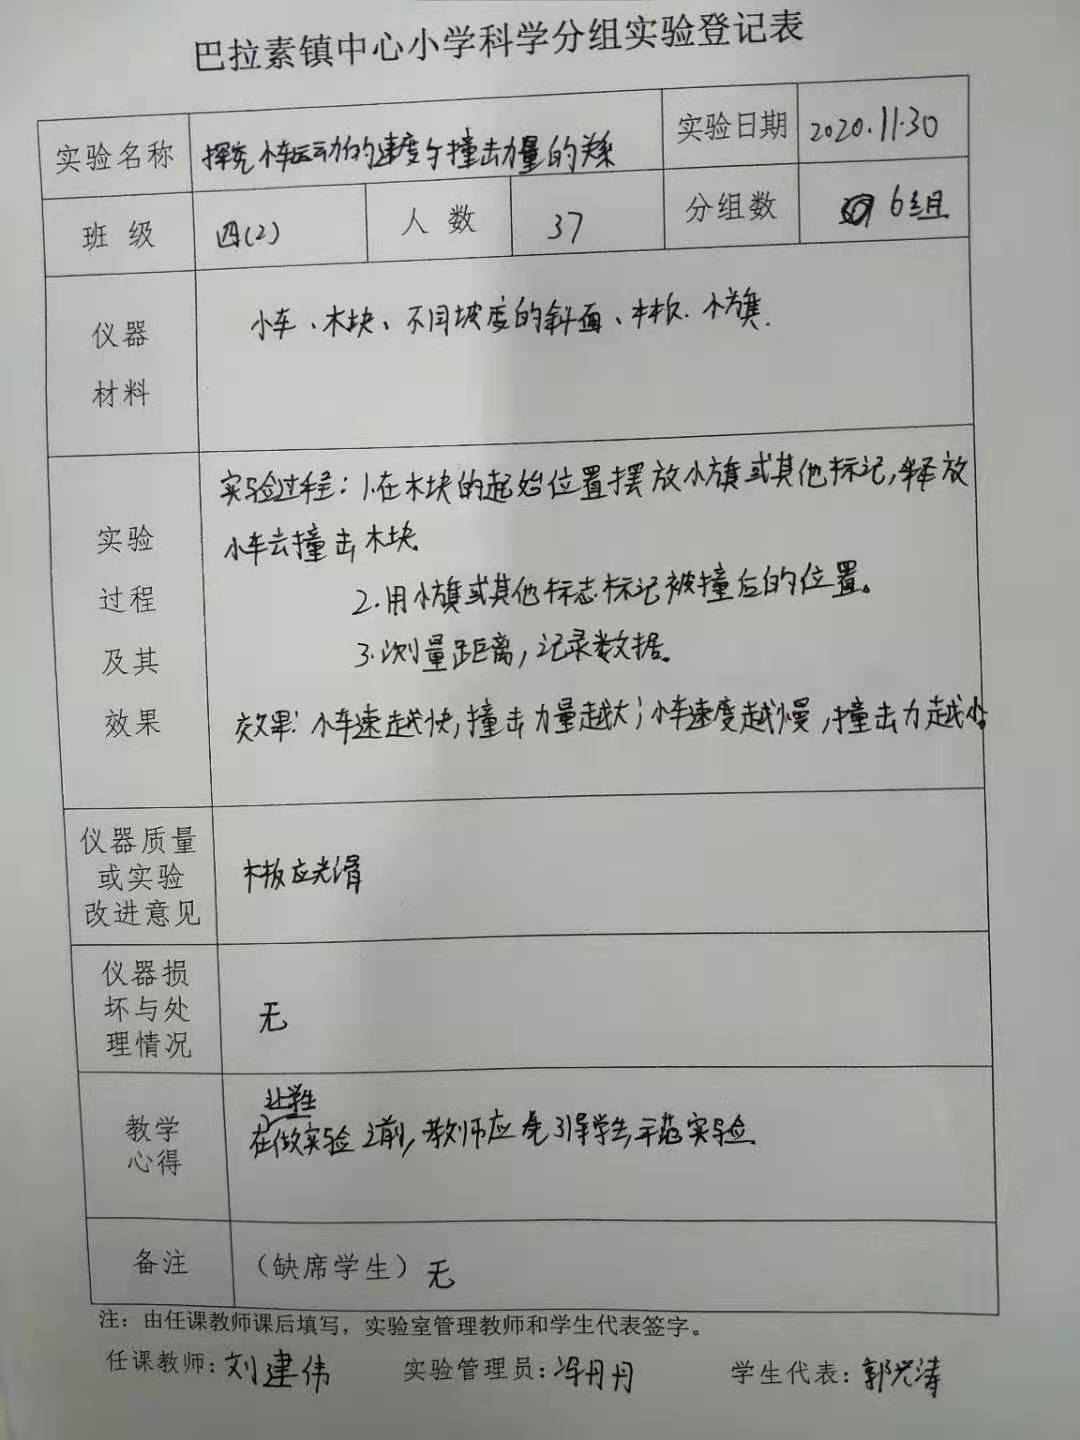 巴拉素镇中心小学科学分组实验登记表
实验名称 探究小车运动的速度与撞击力量的关系 实验日期 2020.11.30
班级 四(2) 人数 37 分组数 6组
仪器
材料
小车、木块、不同坡度的斜面、木板、小旗.
实验
过程
及其
效果
实验过程：1.在木块的起始位置摆放小旗或其他标记,释放
小车去撞击木块.
2.用小旗或其他标志标记被撞后的位置。
3.测量距离,记录数据。
效果：小车速越快,撞击力量越大;小车速度越慢,撞击力越小
仪器质量
或实验
改进意见
木板应光滑
仪器损
坏与处
理情况
无
教学
心得
让学生
在做实验之前,教师应先引导学生,示范实验.
备注 （缺席学生）无
注：由任课教师课后填写，实验室管理教师和学生代表签字。
任课教师：刘建伟 实验管理员：冯丹丹 学生代表：郭光涛